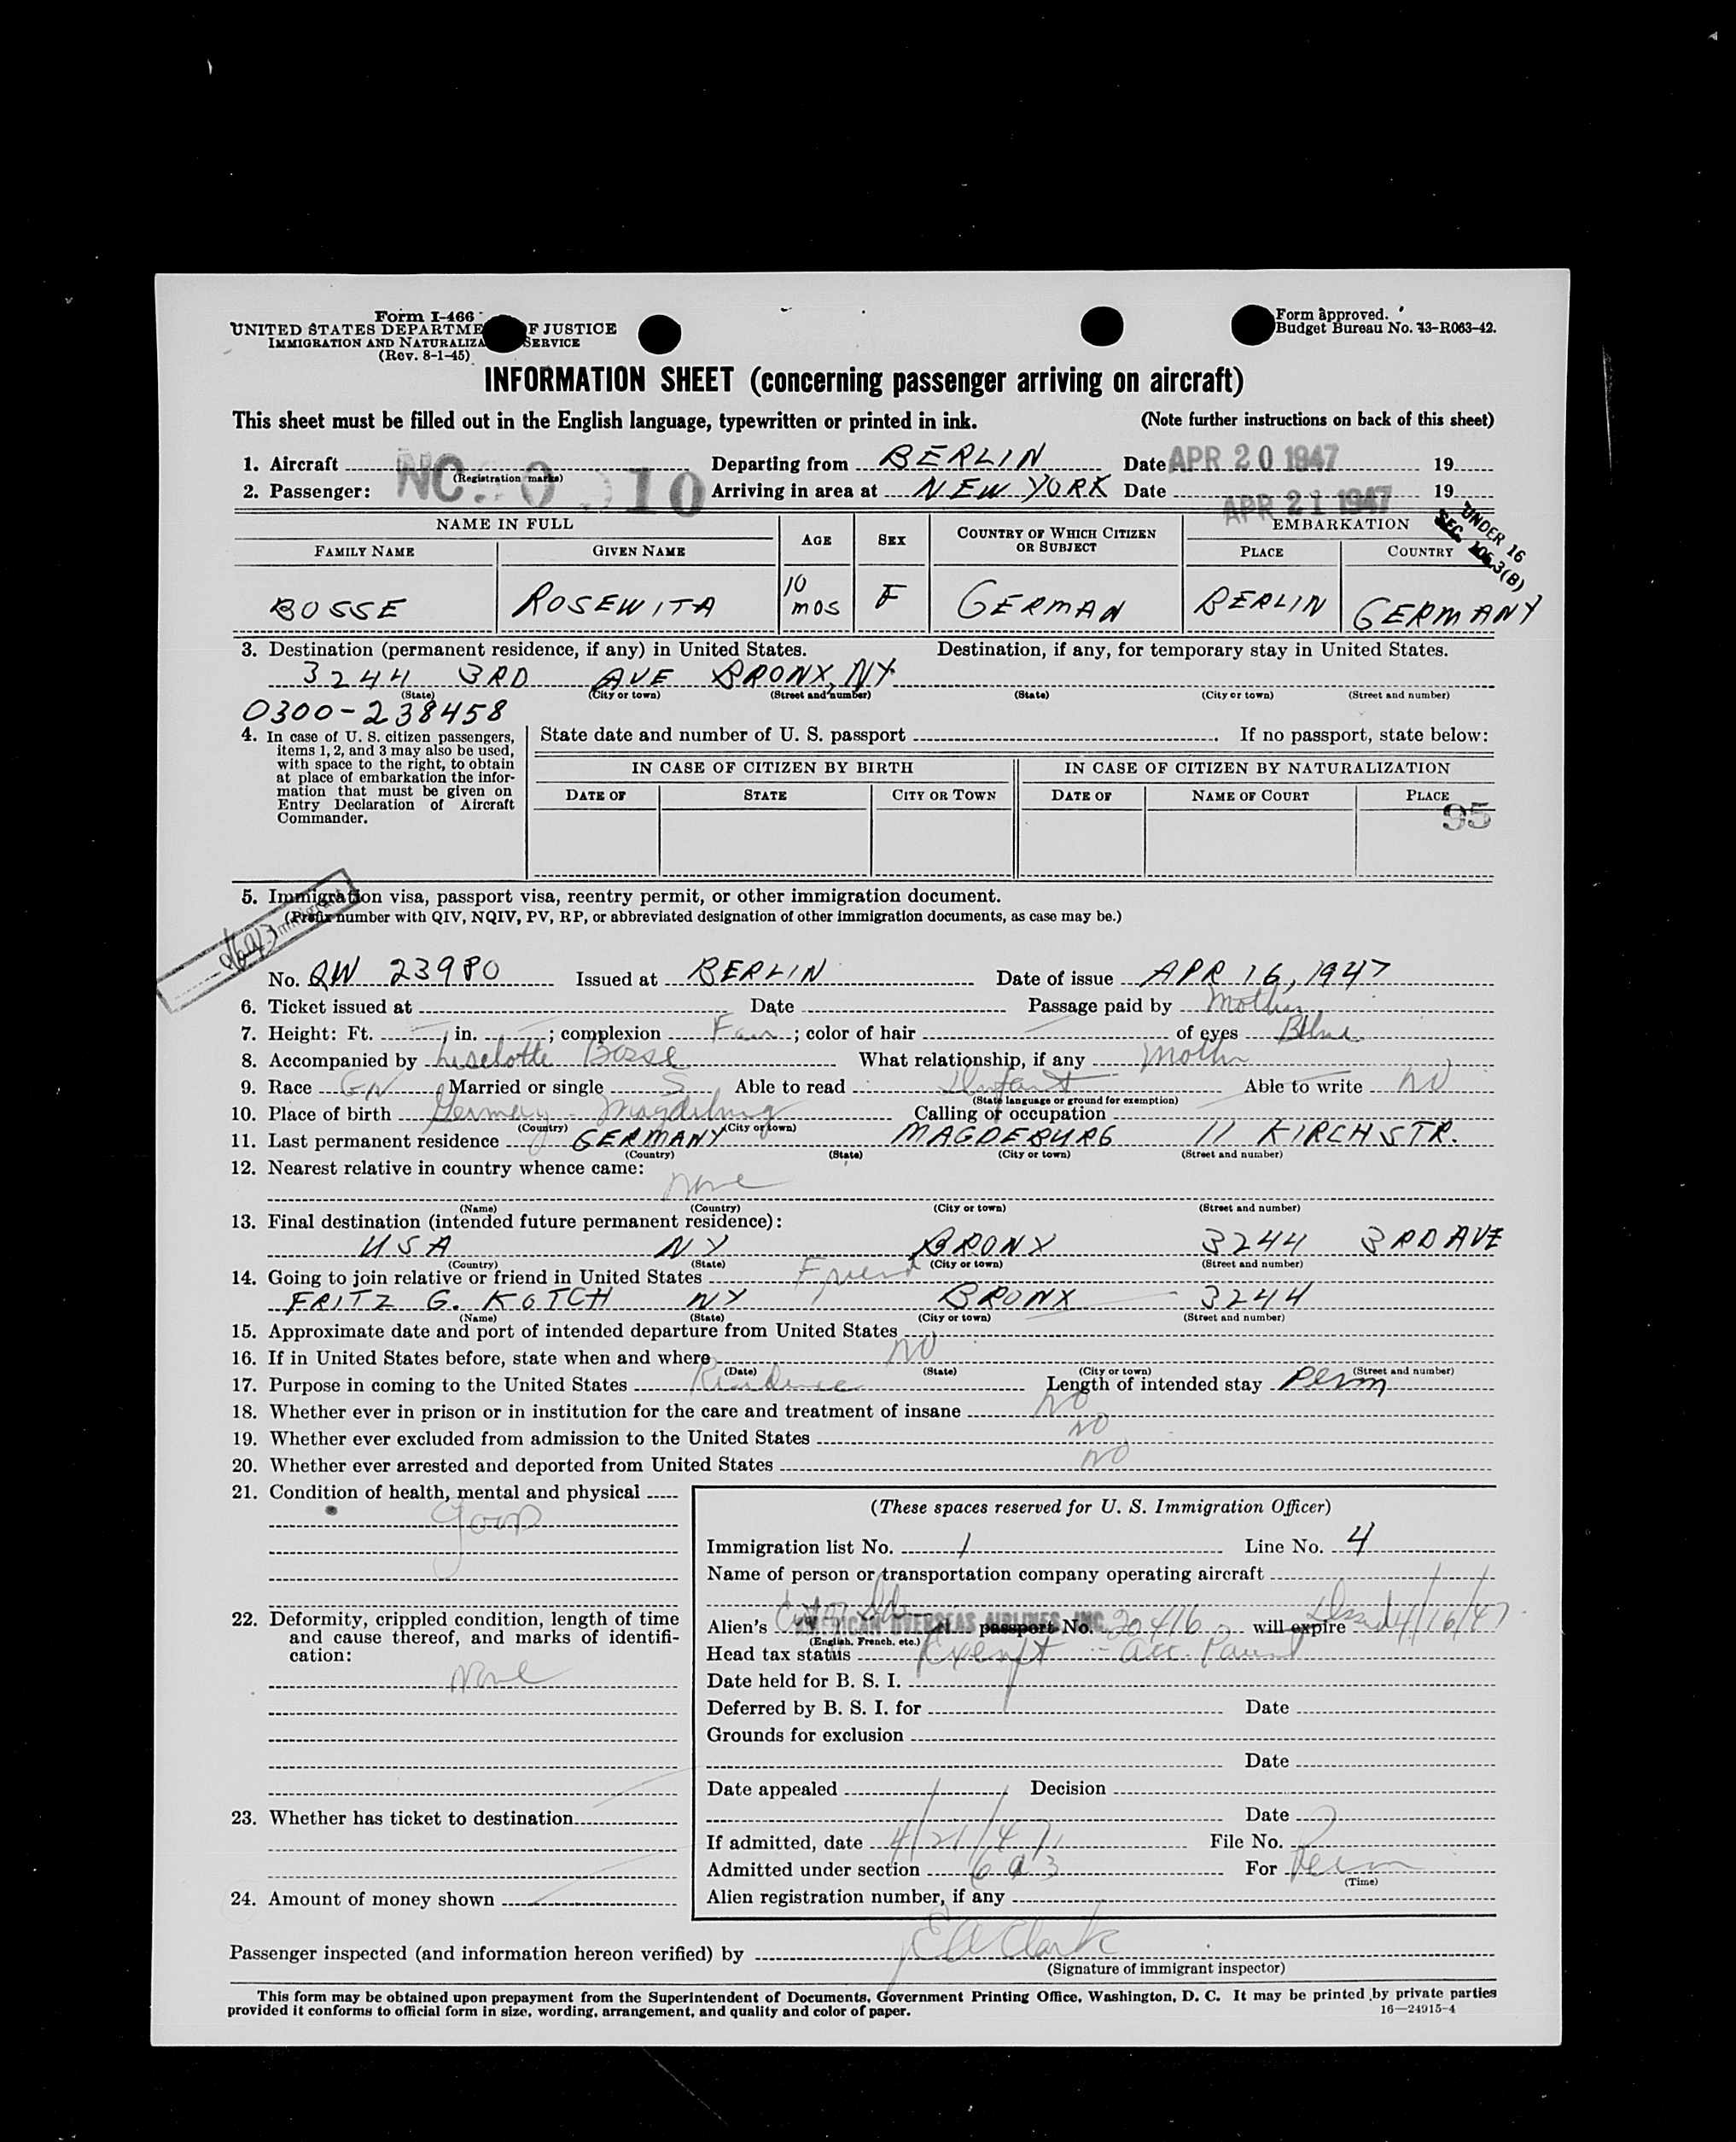 Form I-466
UNITED STATES DEPARTME F JUSTICE
IMMIGRATION AND NATURALIZA SERVICE
(Rev. 8-1-45)
Form approved.
Budget Bureau No. 43-R063-42.
INFORMATION SHEET (concerning passenger arriving on aircraft)
This sheet must be filled out in the English language, typewritten or printed in ink. (Note further instructions on back of this sheet)
1. Aircraft NC Departing from BERLIN Date APR 20 1947 19
(Registration marks)
2. Passenger: Arriving in area at NEW YORK Date APR 21 1947 19
UNDER 16
SEC. 105.3(B)
NAME IN FULL AGE SEX COUNTRY OF WHICH CITIZEN OR SUBJECT EMBARKATION
FAMILY NAME GIVEN NAME PLACE COUNTRY
BOSSE ROSEWITA 10 mos F GERMAN BERLIN GERMANY
3. Destination (permanent residence, if any) in United States. Destination, if any, for temporary stay in United States.
3244 3RD AVE BRONX, NY
(State) (City or town) (Street and number) (State) (City or town) (Street and number)
0300-238458
4. In case of U. S. citizen passengers,
items 1, 2, and 3 may also be used,
with space to the right, to obtain
at place of embarkation the infor-
mation that must be given on
Entry Declaration of Aircraft
Commander.
State date and number of U. S. passport If no passport, state below:
IN CASE OF CITIZEN BY BIRTH IN CASE OF CITIZEN BY NATURALIZATION
DATE OF STATE CITY OR TOWN DATE OF NAME OF COURT PLACE
95
5. Immigration visa, passport visa, reentry permit, or other immigration document.
(Prefix number with QIV, NQIV, PV, RP, or abbreviated designation of other immigration documents, as case may be.)
No. QW 23980 Issued at BERLIN Date of issue APR 16, 1947
6. Ticket issued at Date Passage paid by Mother
7. Height: Ft. in. ; complexion Fair ; color of hair of eyes Blue
8. Accompanied by Liselotte Bosse What relationship, if any Mother
9. Race GN Married or single S Able to read Infant Able to write NO
(State language or ground for exemption)
10. Place of birth Germany - Magdeburg Calling or occupation
(Country) (City or town)
11. Last permanent residence GERMANY MAGDEBURG 11 KIRCHSTR.
(Country) (State) (City or town) (Street and number)
12. Nearest relative in country whence came:
None
(Name) (Country) (City or town) (Street and number)
13. Final destination (intended future permanent residence):
USA NY BRONX 3244 3RD AVE
(Country) (State) (City or town) (Street and number)
14. Going to join relative or friend in United States Friend
FRITZ G. KOTCH NY BRONX 3244
(Name) (State) (City or town) (Street and number)
15. Approximate date and port of intended departure from United States
16. If in United States before, state when and where NO
(Date) (State) (City or town) (Street and number)
17. Purpose in coming to the United States Residence Length of intended stay Perm
18. Whether ever in prison or in institution for the care and treatment of insane NO
19. Whether ever excluded from admission to the United States NO
20. Whether ever arrested and deported from United States NO
21. Condition of health, mental and physical
Good
22. Deformity, crippled condition, length of time
and cause thereof, and marks of identifi-
cation:
None
23. Whether has ticket to destination
24. Amount of money shown
(These spaces reserved for U. S. Immigration Officer)
Immigration list No. 1 Line No. 4
Name of person or transportation company operating aircraft
AMERICAN OVERSEAS AIRLINES, INC.
Alien's passport No. 20416 will expire Issued 4/16/47
(English, French, etc.)
Head tax status Exempt - acc. Parent
Date held for B. S. I.
Deferred by B. S. I. for Date
Grounds for exclusion
Date
Date appealed Decision
Date
If admitted, date 4/21/47 File No.
Admitted under section 6 a 3 For Perm
(Time)
Alien registration number, if any
Passenger inspected (and information hereon verified) by E A Clark
(Signature of immigrant inspector)
This form may be obtained upon prepayment from the Superintendent of Documents, Government Printing Office, Washington, D. C. It may be printed by private parties
provided it conforms to official form in size, wording, arrangement, and quality and color of paper. 16—24915-4